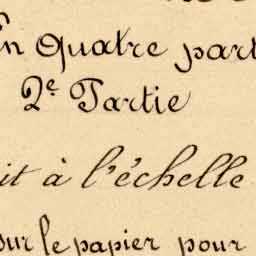 en Quatre part
2e Partie
it à l'échelle
sur le papier pour